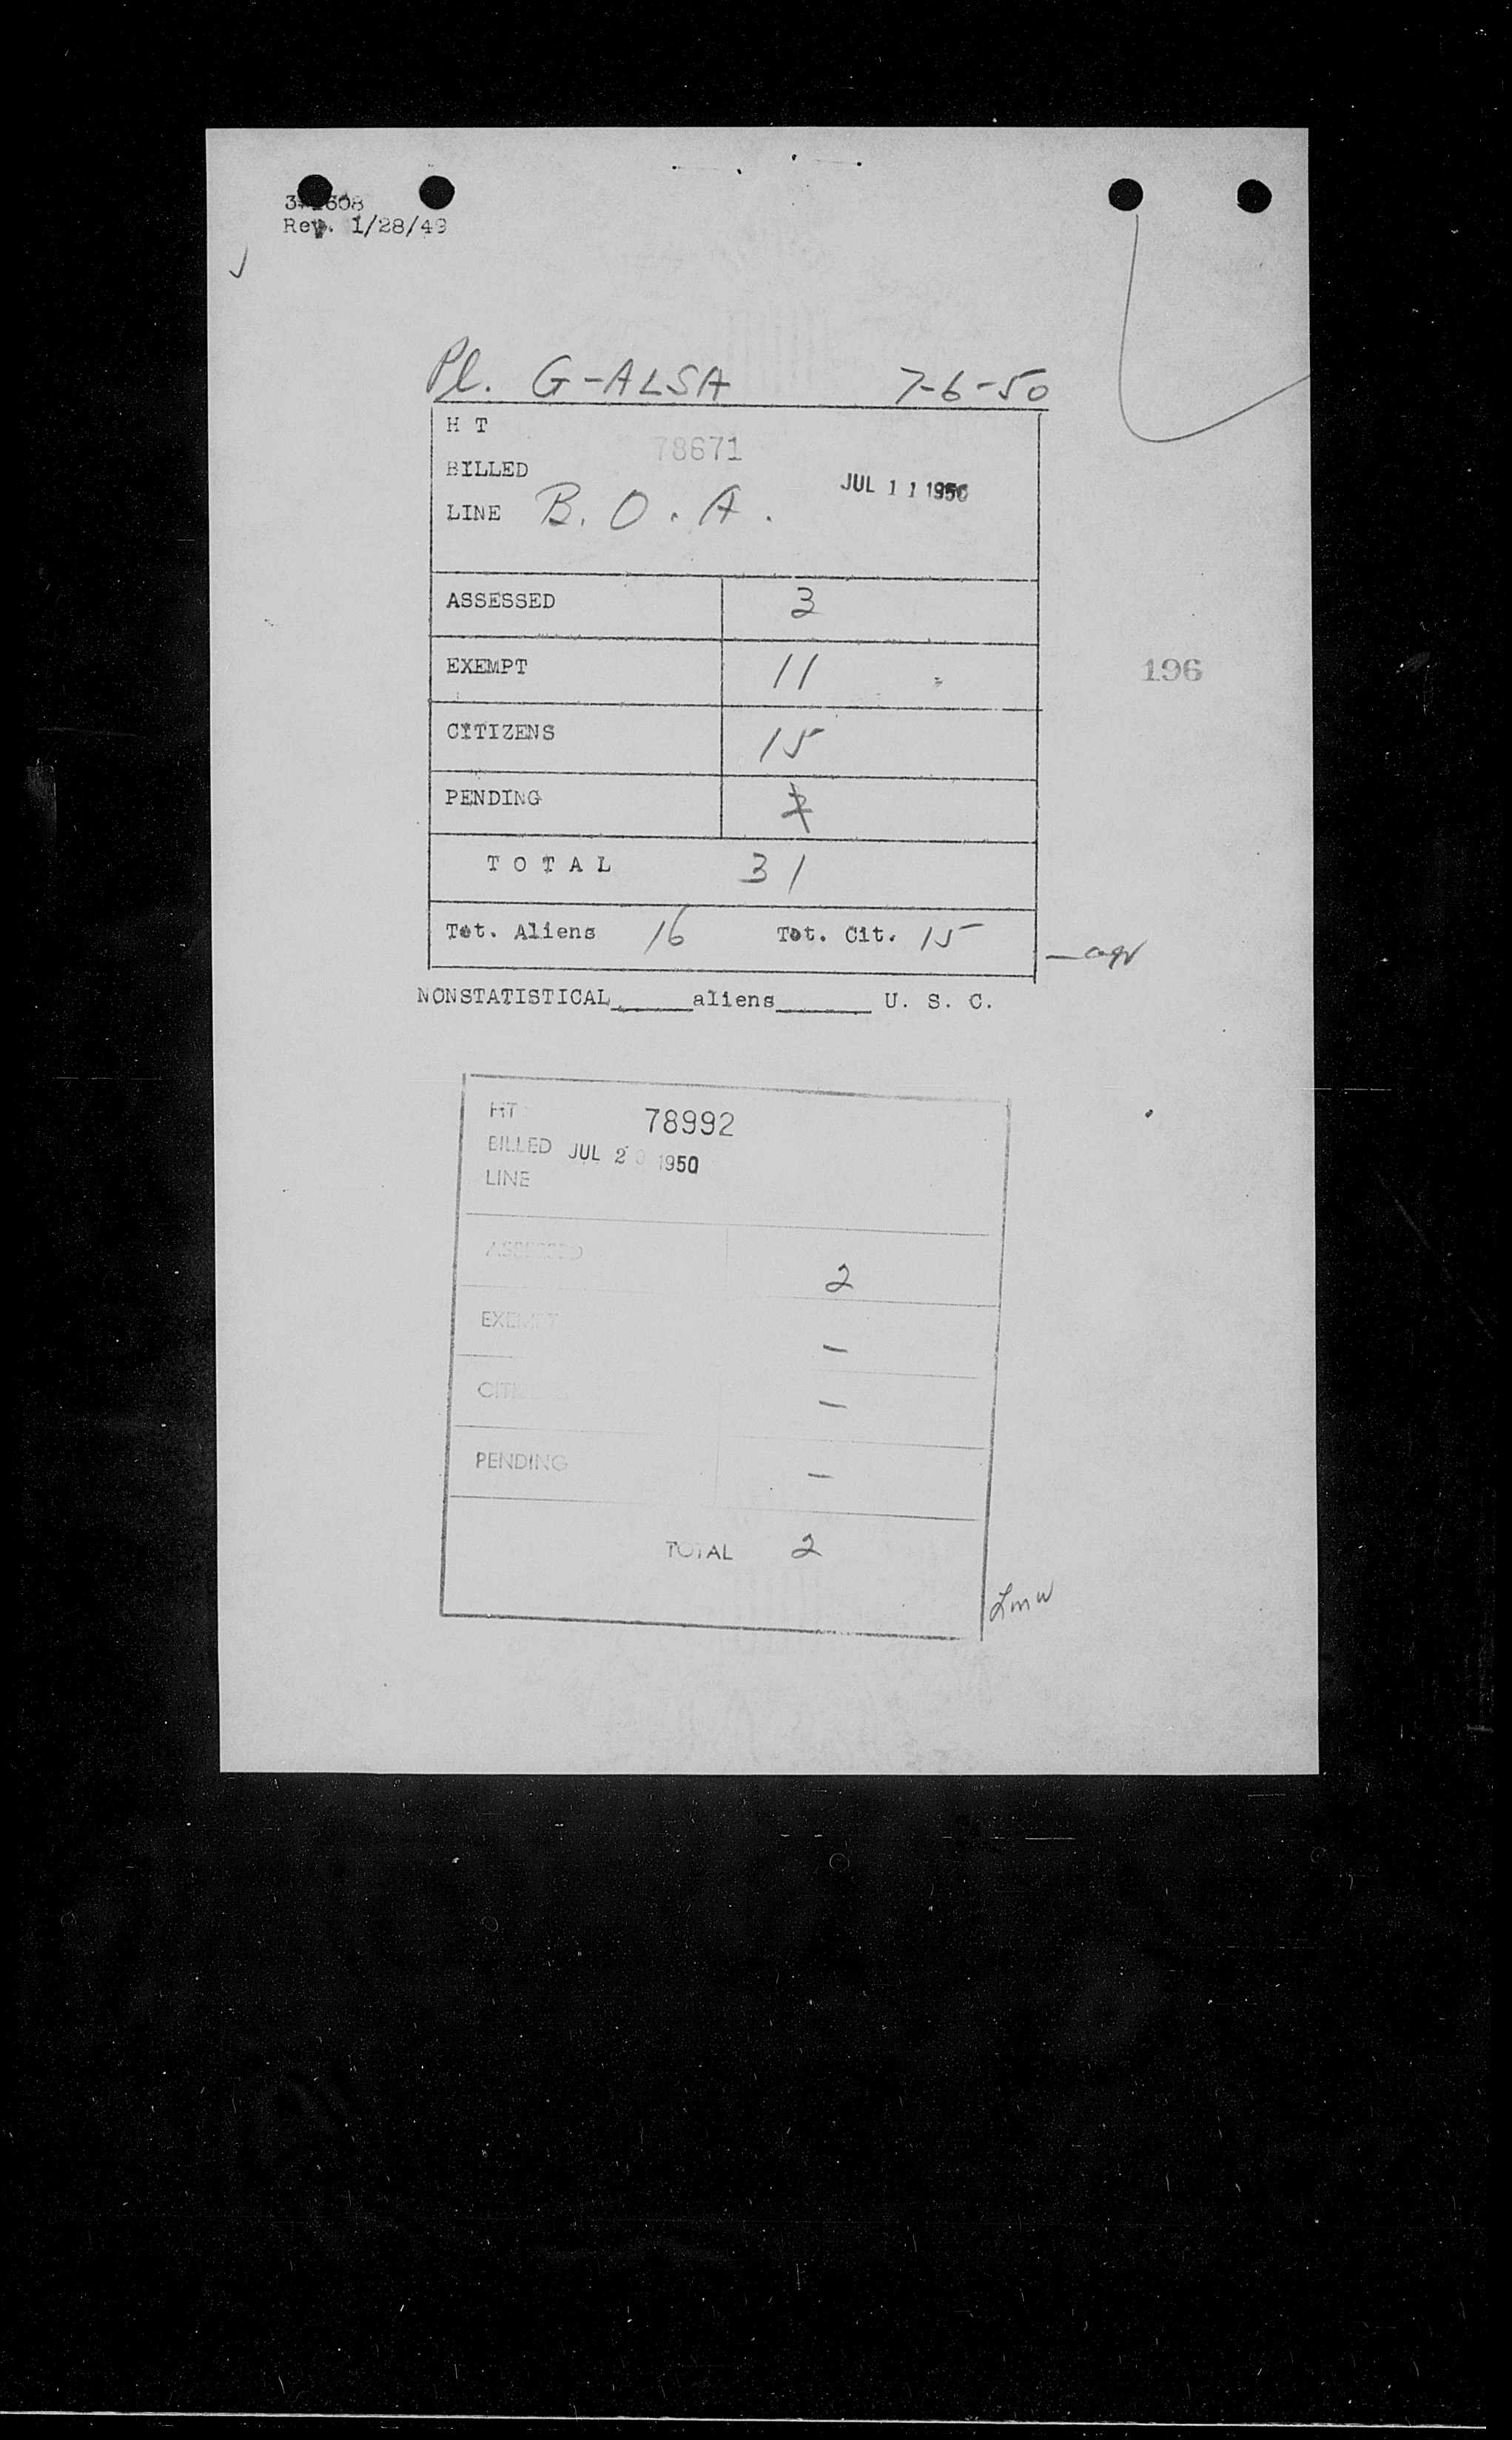 Rev. 1/28/49
Pl. G-ALSA 7-6-50
H T 78671
BILLED JUL 11 1950
LINE B.O.A.
ASSESSED 3
EXEMPT 11
196
CITIZENS 15
PENDING
TOTAL 31
Tot. Aliens 16 Tot. Cit. 15
NONSTATISTICAL_____aliens______ U. S. C.
HT 78992
BILLED JUL 20 1950
LINE
ASSESSED 2
EXEMPT –
CITIZENS –
PENDING –
TOTAL 2
Lmw